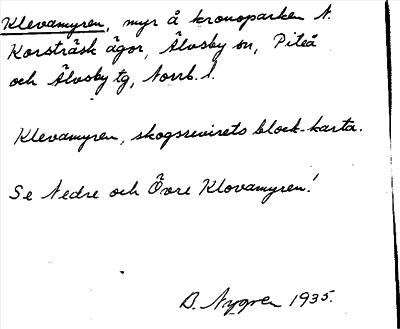 Klevamyren, myr å kronoparken N.
Korsträsk ägor, Älvsby sn, Piteå
och Älvsby tg, Norrb. l.
Klevamyren, skogsrevirets block-karta.
Se Nedre och Övre Klovamyren!
B. Nygren 1935.